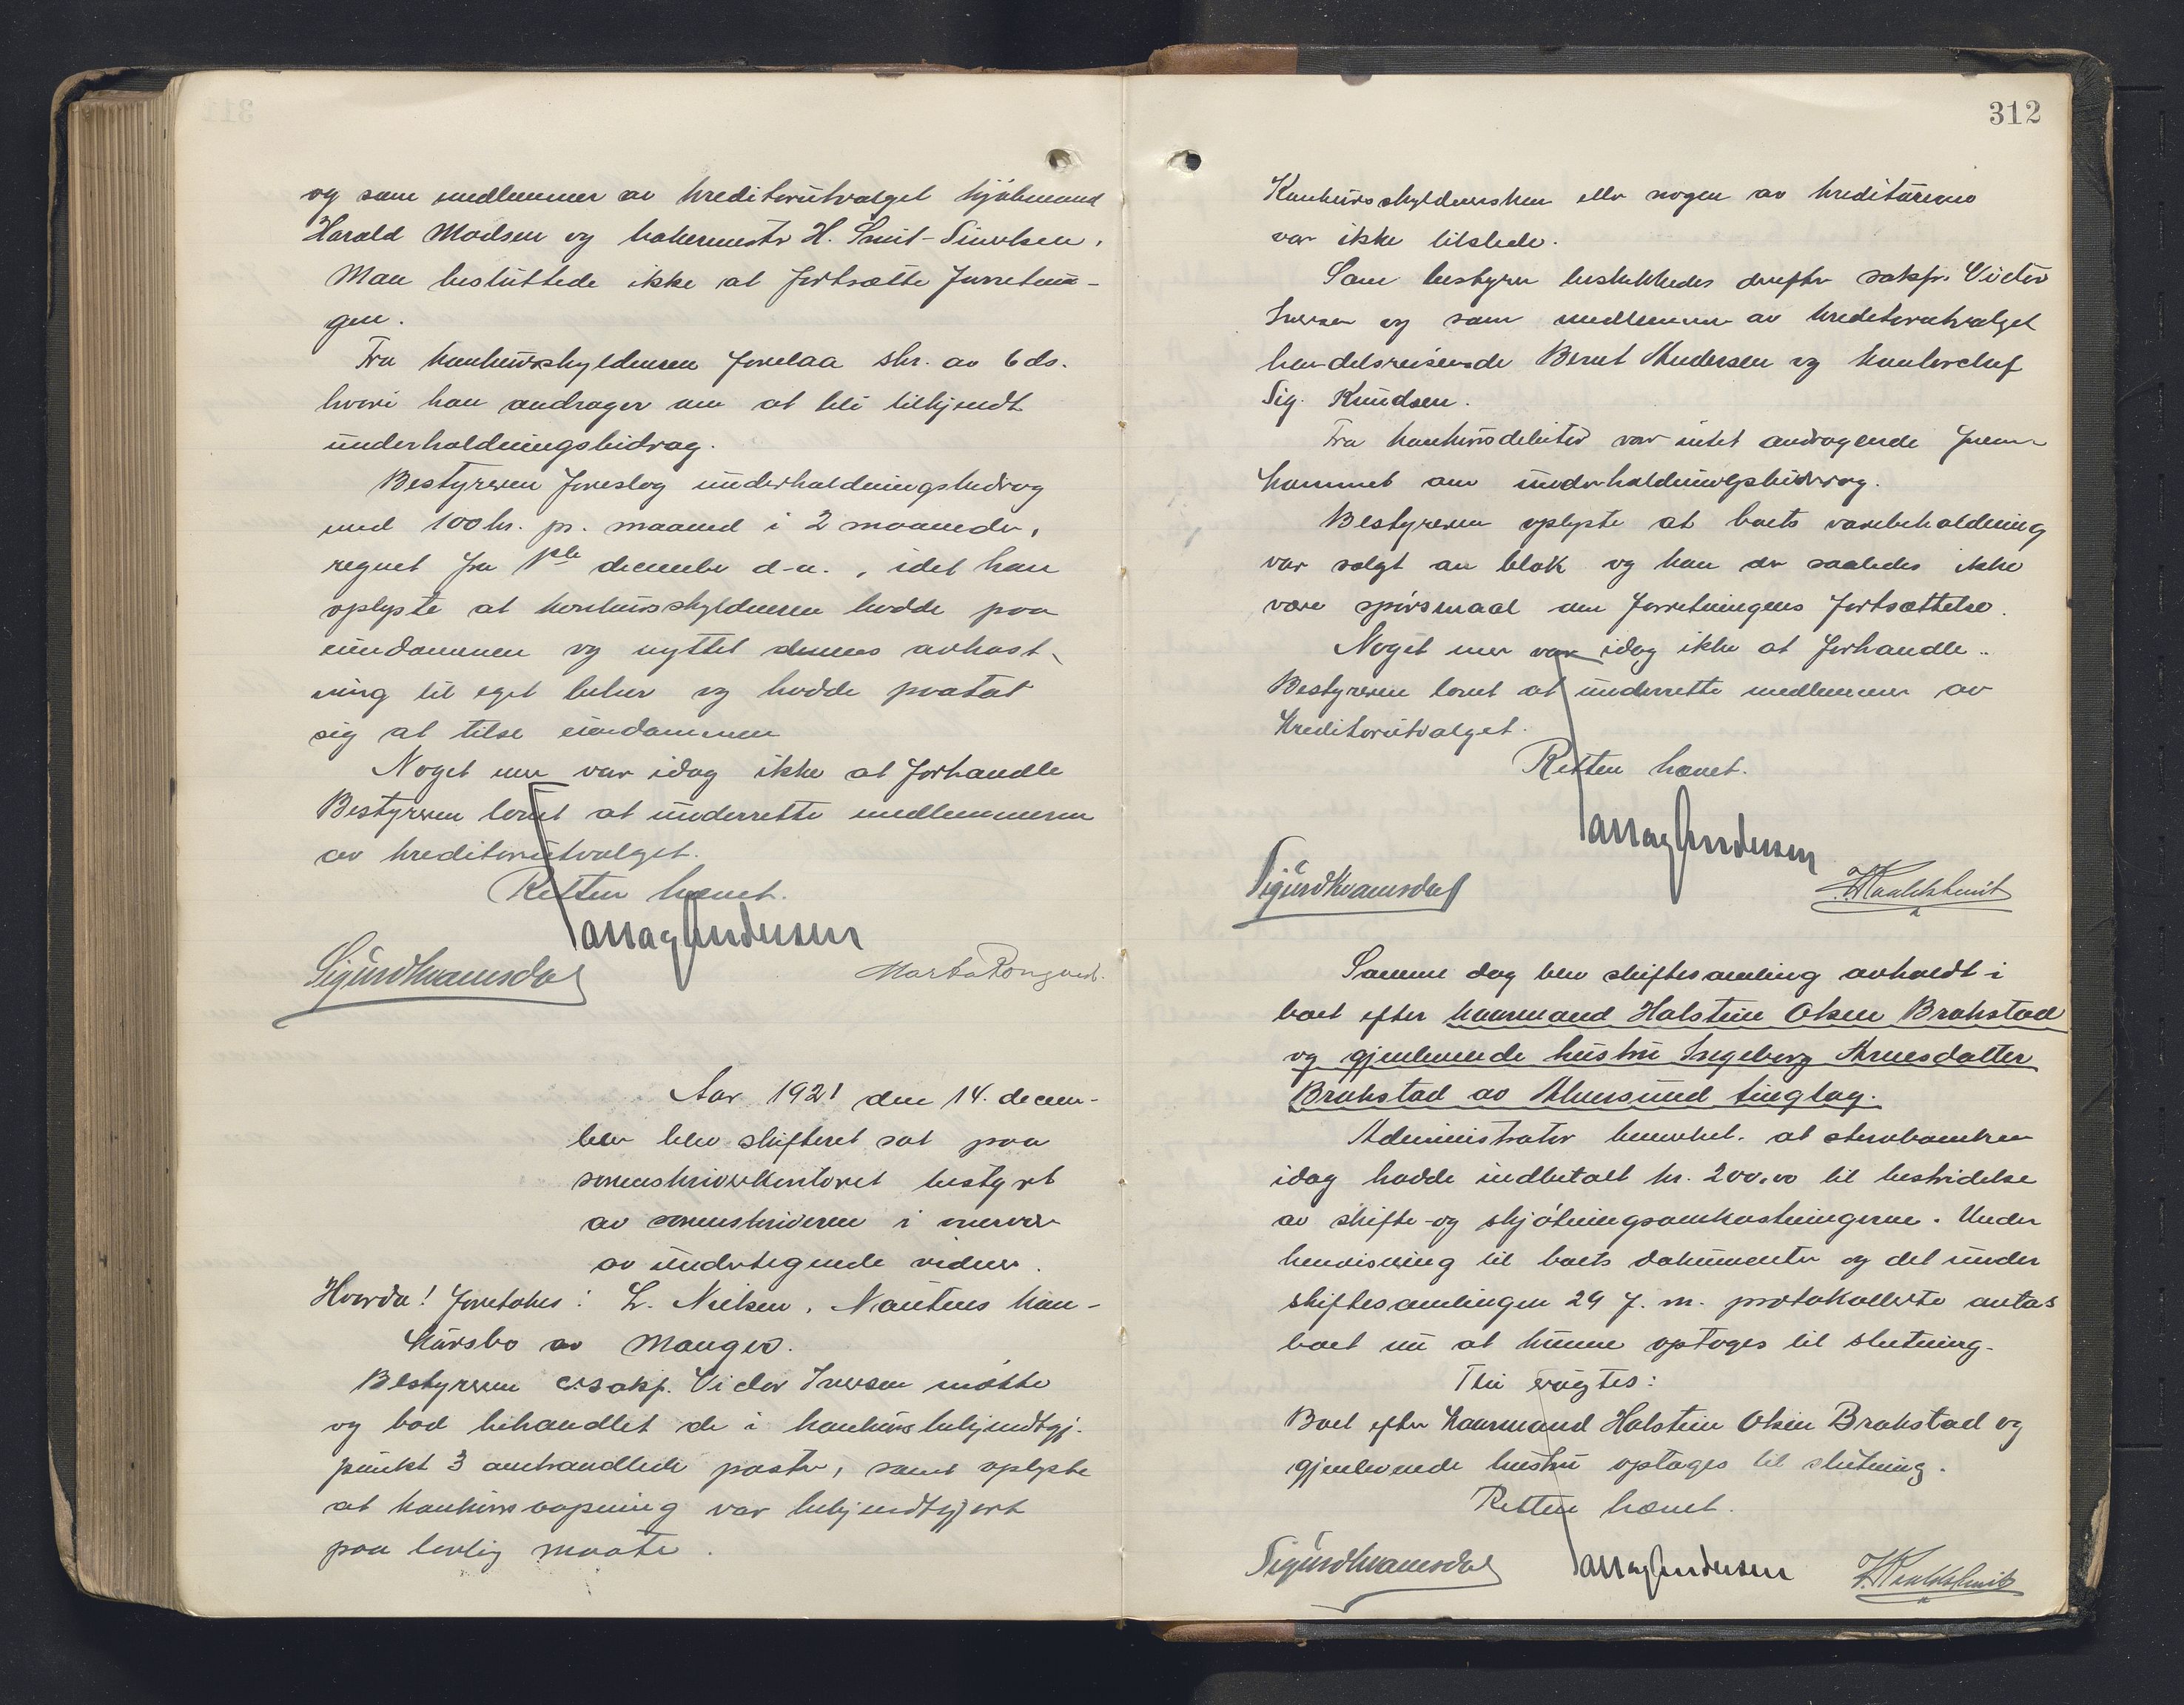 og som medlemmer av kreditorutvalget kjøbmand
Harald Madsen og bakermester H. Smit-Sivertsen.
Man besluttede ikke at fortsætte forretnin-
gen.
Fra konkursskyldneren forelaa skr. av 6 ds.
hvori han andrager om at bli tilkjendt
underholdningsbidrag.
Bestyreren foreslog underholdningsbidrag
med 100 kr. pr. maaned i 2 maaneder,
regnet fra 1ste december d.a., idet han
oplyste at konkursskyldneren bodde paa
eiendommen og nyttet dennes avkast-
ning til eget behov og hadde paatat
sig at tilse eiendommen
Noget mer var idag ikke at forhandle
Bestyreren lovet at underrette medlemmerne
av kreditorutvalget.
Retten hævet.
Sigurd Kvamsdal
Marta Rongved.
Aar 1921 den 14. decem-
ber blev skifteret sat paa
sorenskriverkontoret bestyrt
av sorenskriveren i nærvær
av undertegnede vidner.
Hvorda! foretokes: L. Nielsen, Nautnes kon-
kursbo av Manger.
Bestyreren o.r.sakf. Victor Iversen møtte
og bad behandlet de i konkursbekjendtgj.
punkt 3 omhandlede poster, samt oplyste
at konkursaapning var bekjendtgjort
paa lovlig maate.
312
Konkursskyldnersken eller nogen av kreditorerne
var ikke tilstede.
Som bestyrer beskikkedes derefter sakf. Victor
Iversen og som medlemmer av kreditorutvalget
handelsreisende Bernt Andersen og kontorchef
Sig. Knudsen.
Fra konkursdebitor var intet andragende frem-
kommet om underholdningsbidrag.
Bestyreren oplyste at boets varebeholdning
var solgt en blok og kan der saaledes ikke
være spørsmaal om forretningens fortsættelse.
Noget mer var idag ikke at forhandle.
Bestyreren lovet at underrette medlemmer av
kreditorutvalget.
Retten hævet.
Sigurd Kvamsdal
Samme dag blev skiftesamling avholdt i
boet efter kaarmand Holstein Olsen Brakstad
og gjenlevende hustru Ingeborg Arnesdatter
Brakstad av Alversund tinglag.
Administrator bemerket at stervboenken
idag hadde indbetalt kr. 200,00 til bestridelse
av skifte- og skjøtningsomkostningerne. Under
henvisning til boets dokumenter og det under
skiftesamlingen 29 f. m. protokollerte antas
boet nu at kunne optages til slutning.
Thi eragtes:
Boet efter kaarmand Holstein Olsen Brakstad og
gjenlevende hustru optages til slutning.
Retten hævet.
Sigurd Kvamsdal